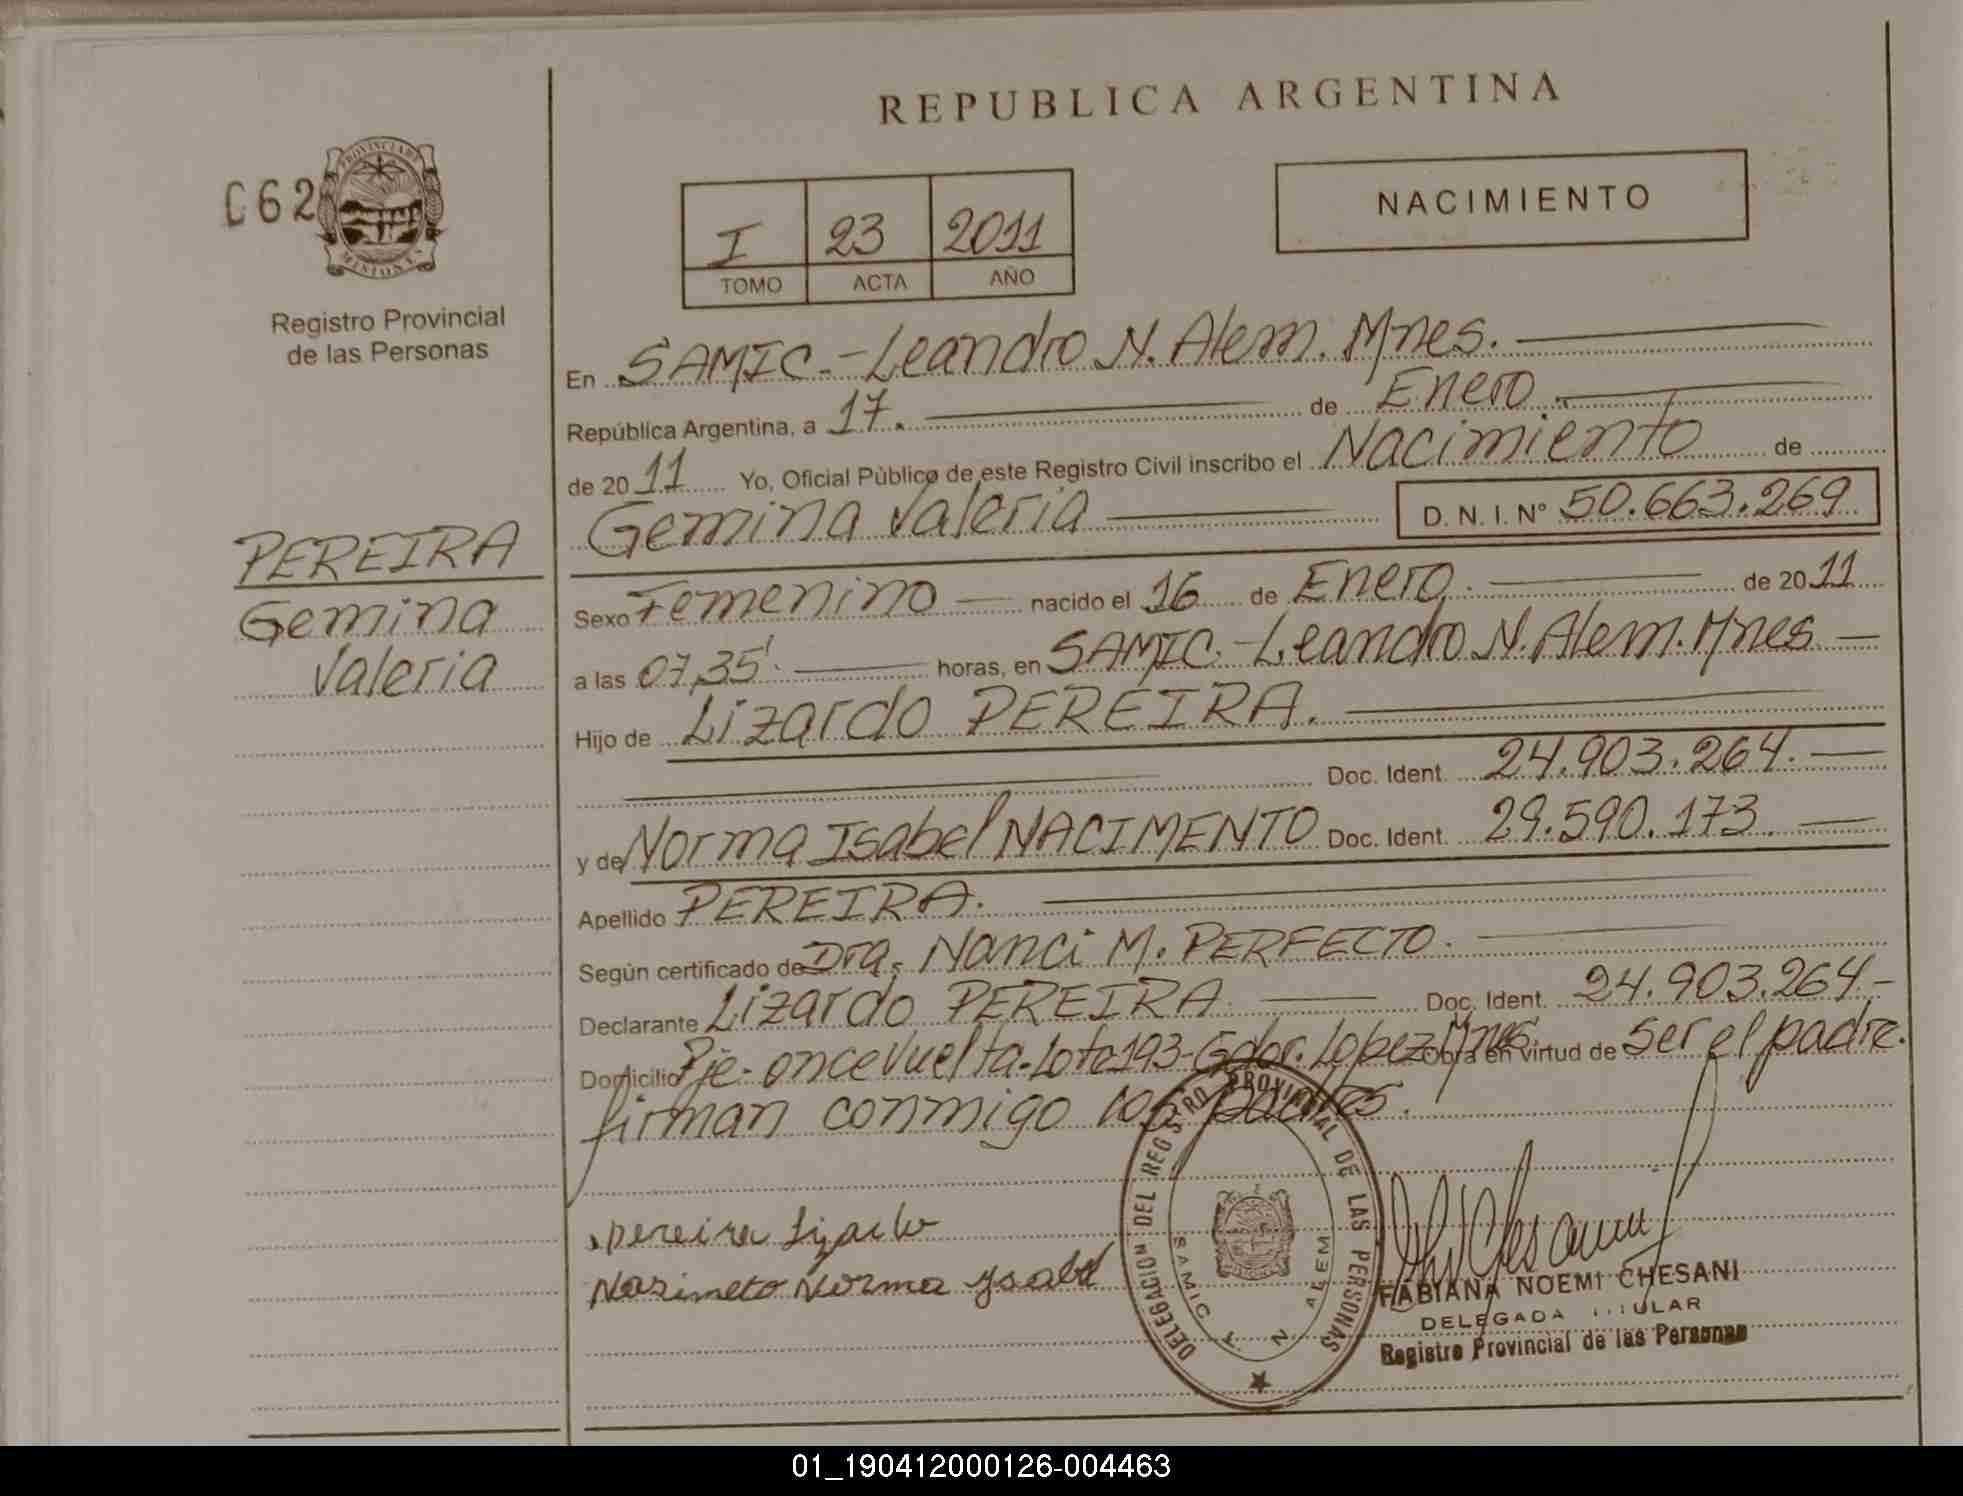 REPUBLICA ARGENTINA
C62
PROVINCIA DE
MISIONES
Registro Provincial
de las Personas
I 23 2011
TOMO ACTA AÑO
NACIMIENTO
En SAMIC.-Leandro N. Alem. Mnes.
República Argentina, a 17. de Enero.
de 20 11 Yo, Oficial Público de este Registro Civil inscribo el Nacimiento de
Gemina Valeria D. N. I. N° 50.663.269
PEREIRA
Gemina
Valeria
Sexo Femenino nacido el 16 de Enero. de 20 11
a las 07,35'. horas, en SAMIC.-Leandro N. Alem. Mnes
Hijo de Lizardo PEREIRA.
Doc. Ident. 24.903.264.
y de Norma Isabel NACIMENTO Doc. Ident. 29.590.173.
Apellido PEREIRA.
Según certificado de Dra. Nanci M. PERFECTO.
Declarante Lizardo PEREIRA. Doc. Ident. 24.903.264.-
Domicilio Pje. once Vuelta-Lote 193-Gdor. Lopez Mnes. Obra en virtud de ser el padre.
firman conmigo los padres.
pereira Lizardo
Nasimeto Norma Ysabel
DELEGACION DEL REGISTRO PROVINCIAL DE LAS PERSONAS
SAMIC L. N. ALEM
FABIANA NOEMI CHESANI
DELEGADA TITULAR
Registro Provincial de las Personas
01_190412000126-004463